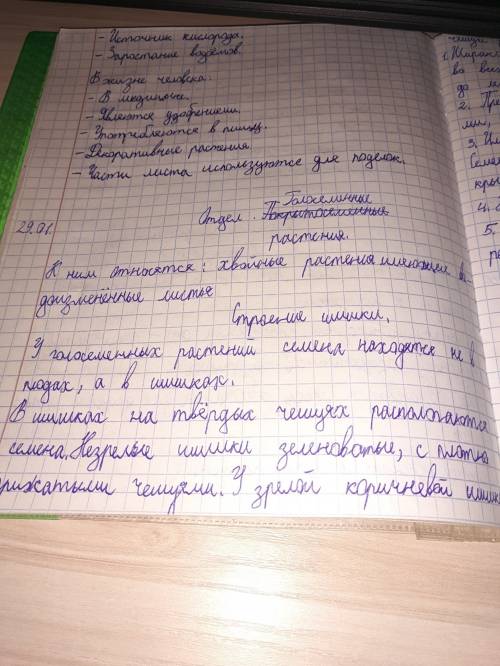 - Источник кислорода.
- Зарастание водоёмов.
В жизне человека:
- В медицине.
- Являются удобрением.
- Употребляются в пищу.
- Декоративные растения.
- Части листа используются для поделок.
29.01.
Голосеминные
Отдел. Покрытосеменные
растения.
К ним относятся: хвойные растения имеющие ви-
доизменённые листья
Строение шишки.
У голосеменных растений семена находятся не в
плодах, а в шишках.
В шишках на твёрдых чешуях распологаются
семена. Незрелые шишки зеленоватые, с плотно
прижатыми чешуями. У зрелой коричневой шишки
чешуи
1.
во
до
2.
3.
Семе
кры
4.
5.